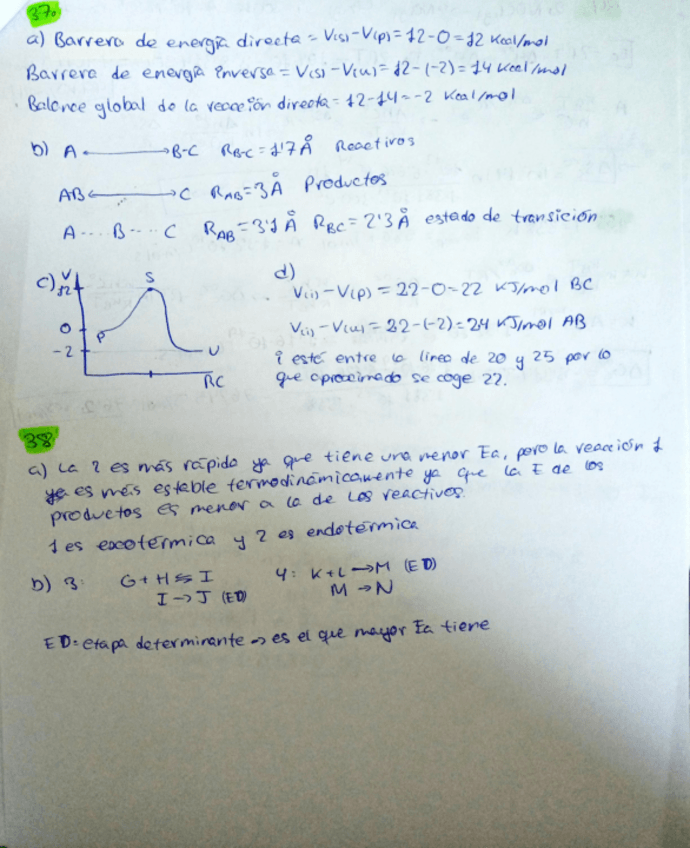 37.
a) Barrera de energía directa = V(s)-V(p) = 12-0 = 12 Kcal/mol
Barrera de energía inversa = V(s) - V(u) = 12-(-2) = 14 Kcal/mol
Balance global de la reacción directa = 12-14 = -2 Kcal/mol
b) A ←→ B-C RB-C = 1'7 Å Reactivos
AB ←→ C RAB = 3 Å Productos
A ···· B ···· C RAB = 3'1 Å RBC = 2'3 Å estado de transición
c) V
12
S
0
P
-2
U
RC
d)
V(i) - V(p) = 22-0 = 22 KJ/mol BC
V(i) - V(u) = 22-(-2) = 24 KJ/mol AB
i está entre la línea de 20 y 25 por lo
que aproximado se coge 22.
38
a) La 2 es más rápida ya que tiene una menor Ea, pero la reacción 1
es más estable termodinámicamente ya que la E de los
productos es menor a la de los reactivos.
1 es exotérmica y 2 es endotérmica
b) 3: G + H ⇆ I 4: K + L → M (ED)
I → J (ED) M → N
ED = etapa determinante → es el que mayor Ea tiene